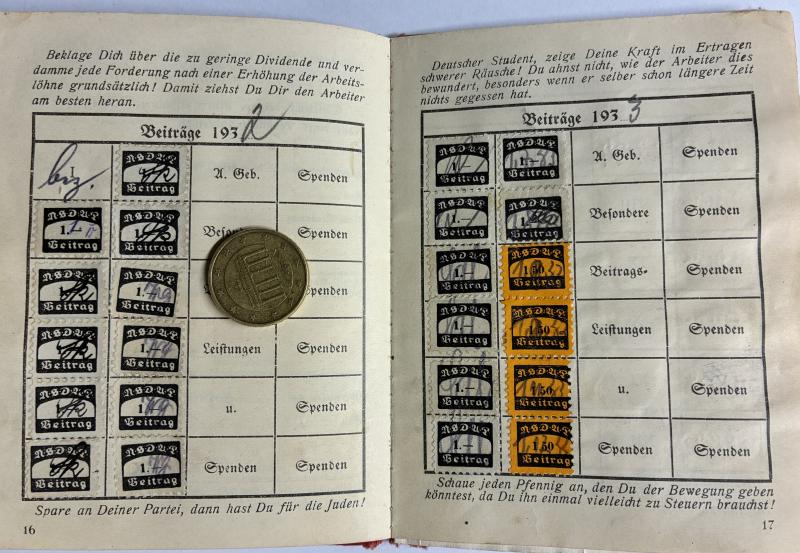 Beklage Dich über die zu geringe Dividende und ver-
damme jede Forderung nach einer Erhöhung der Arbeits-
löhne grundsätzlich! Damit ziehst Du Dir den Arbeiter
am besten heran.
Beiträge 1932
biz.
NSDAP Beitrag
A. Geb.
Spenden
NSDAP 1.– Beitrag
NSDAP Beitrag
Spenden
NSDAP Beitrag
NSDAP 1. Beitrag
Spenden
NSDAP Beitrag
NSDAP 1. Beitrag
Leistungen
Spenden
NSDAP Beitrag
NSDAP 1. Beitrag
u.
Spenden
NSDAP Beitrag
NSDAP 1. Beitrag
Spenden
Spenden
Spare an Deiner Partei, dann hast Du für die Juden!
16
Deutscher Student, zeige Deine Kraft im Ertragen
schwerer Räusche! Du ahnst nicht, wie der Arbeiter dies
bewundert, besonders wenn er selber schon längere Zeit
nichts gegessen hat.
Beiträge 1933
NSDAP Beitrag
NSDAP 1.– Beitrag
A. Geb.
Spenden
NSDAP 1.– Beitrag
NSDAP Beitrag
Besondere
Spenden
NSDAP 1.– Beitrag
NSDAP 1.50 Beitrag
Beitrags-
Spenden
NSDAP Beitrag
NSDAP 1.50 Beitrag
Leistungen
Spenden
NSDAP 1.– Beitrag
NSDAP 1.50 Beitrag
u.
Spenden
NSDAP 1.– Beitrag
NSDAP 1.50 Beitrag
Spenden
Spenden
Schaue jeden Pfennig an, den Du der Bewegung geben
könntest, da Du ihn einmal vielleicht zu Steuern brauchst!
17